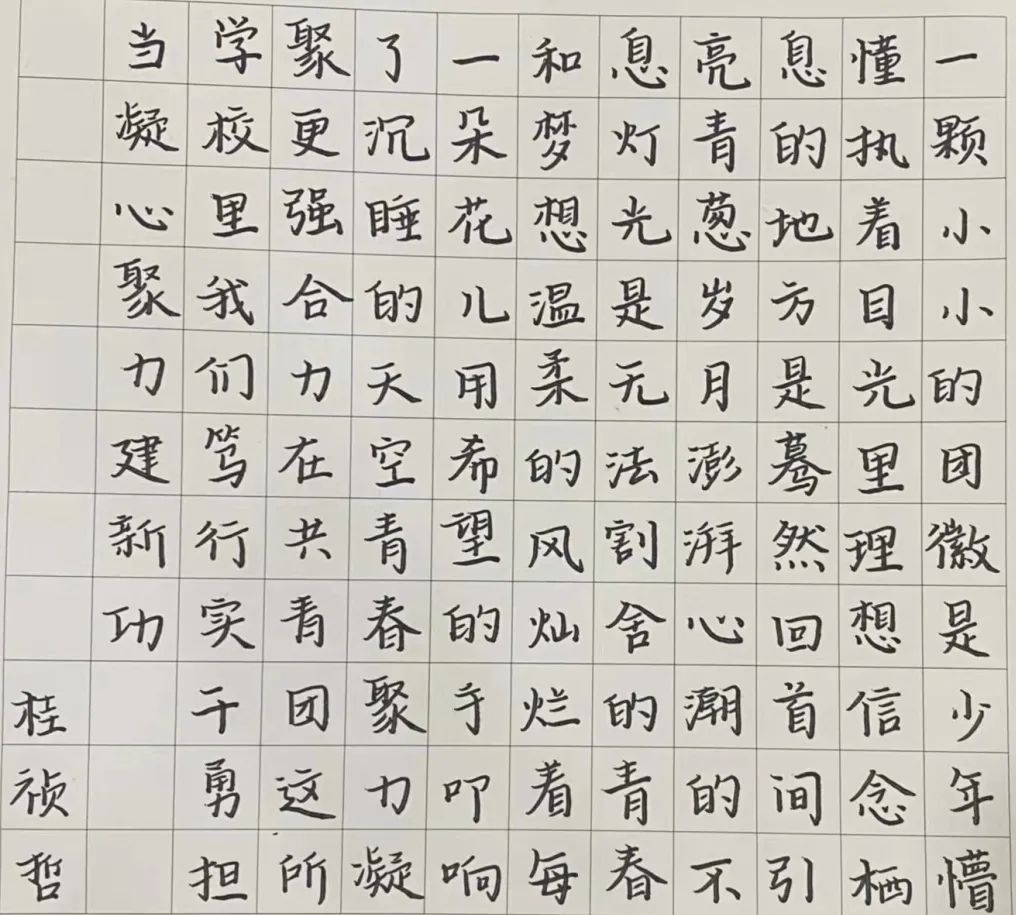 一颗小小的团徽是少年懵
懂执着目光里理想信念栖
息的地方是蓦然回首间引
亮青葱岁月澎湃心潮的不
息灯光是无法割舍的青春
和梦想温柔的风灿烂着每
一朵花儿用希望的手叩响
了沉睡的天空青春聚力凝
聚更强合力在共青团这所
学校里我们笃行实干勇担
当凝心聚力建新功
桂祯哲